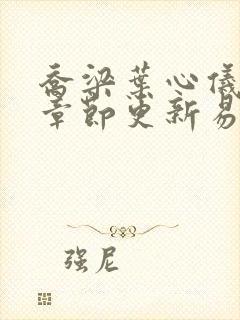 乔梁叶心仪
章节更新易
强尼